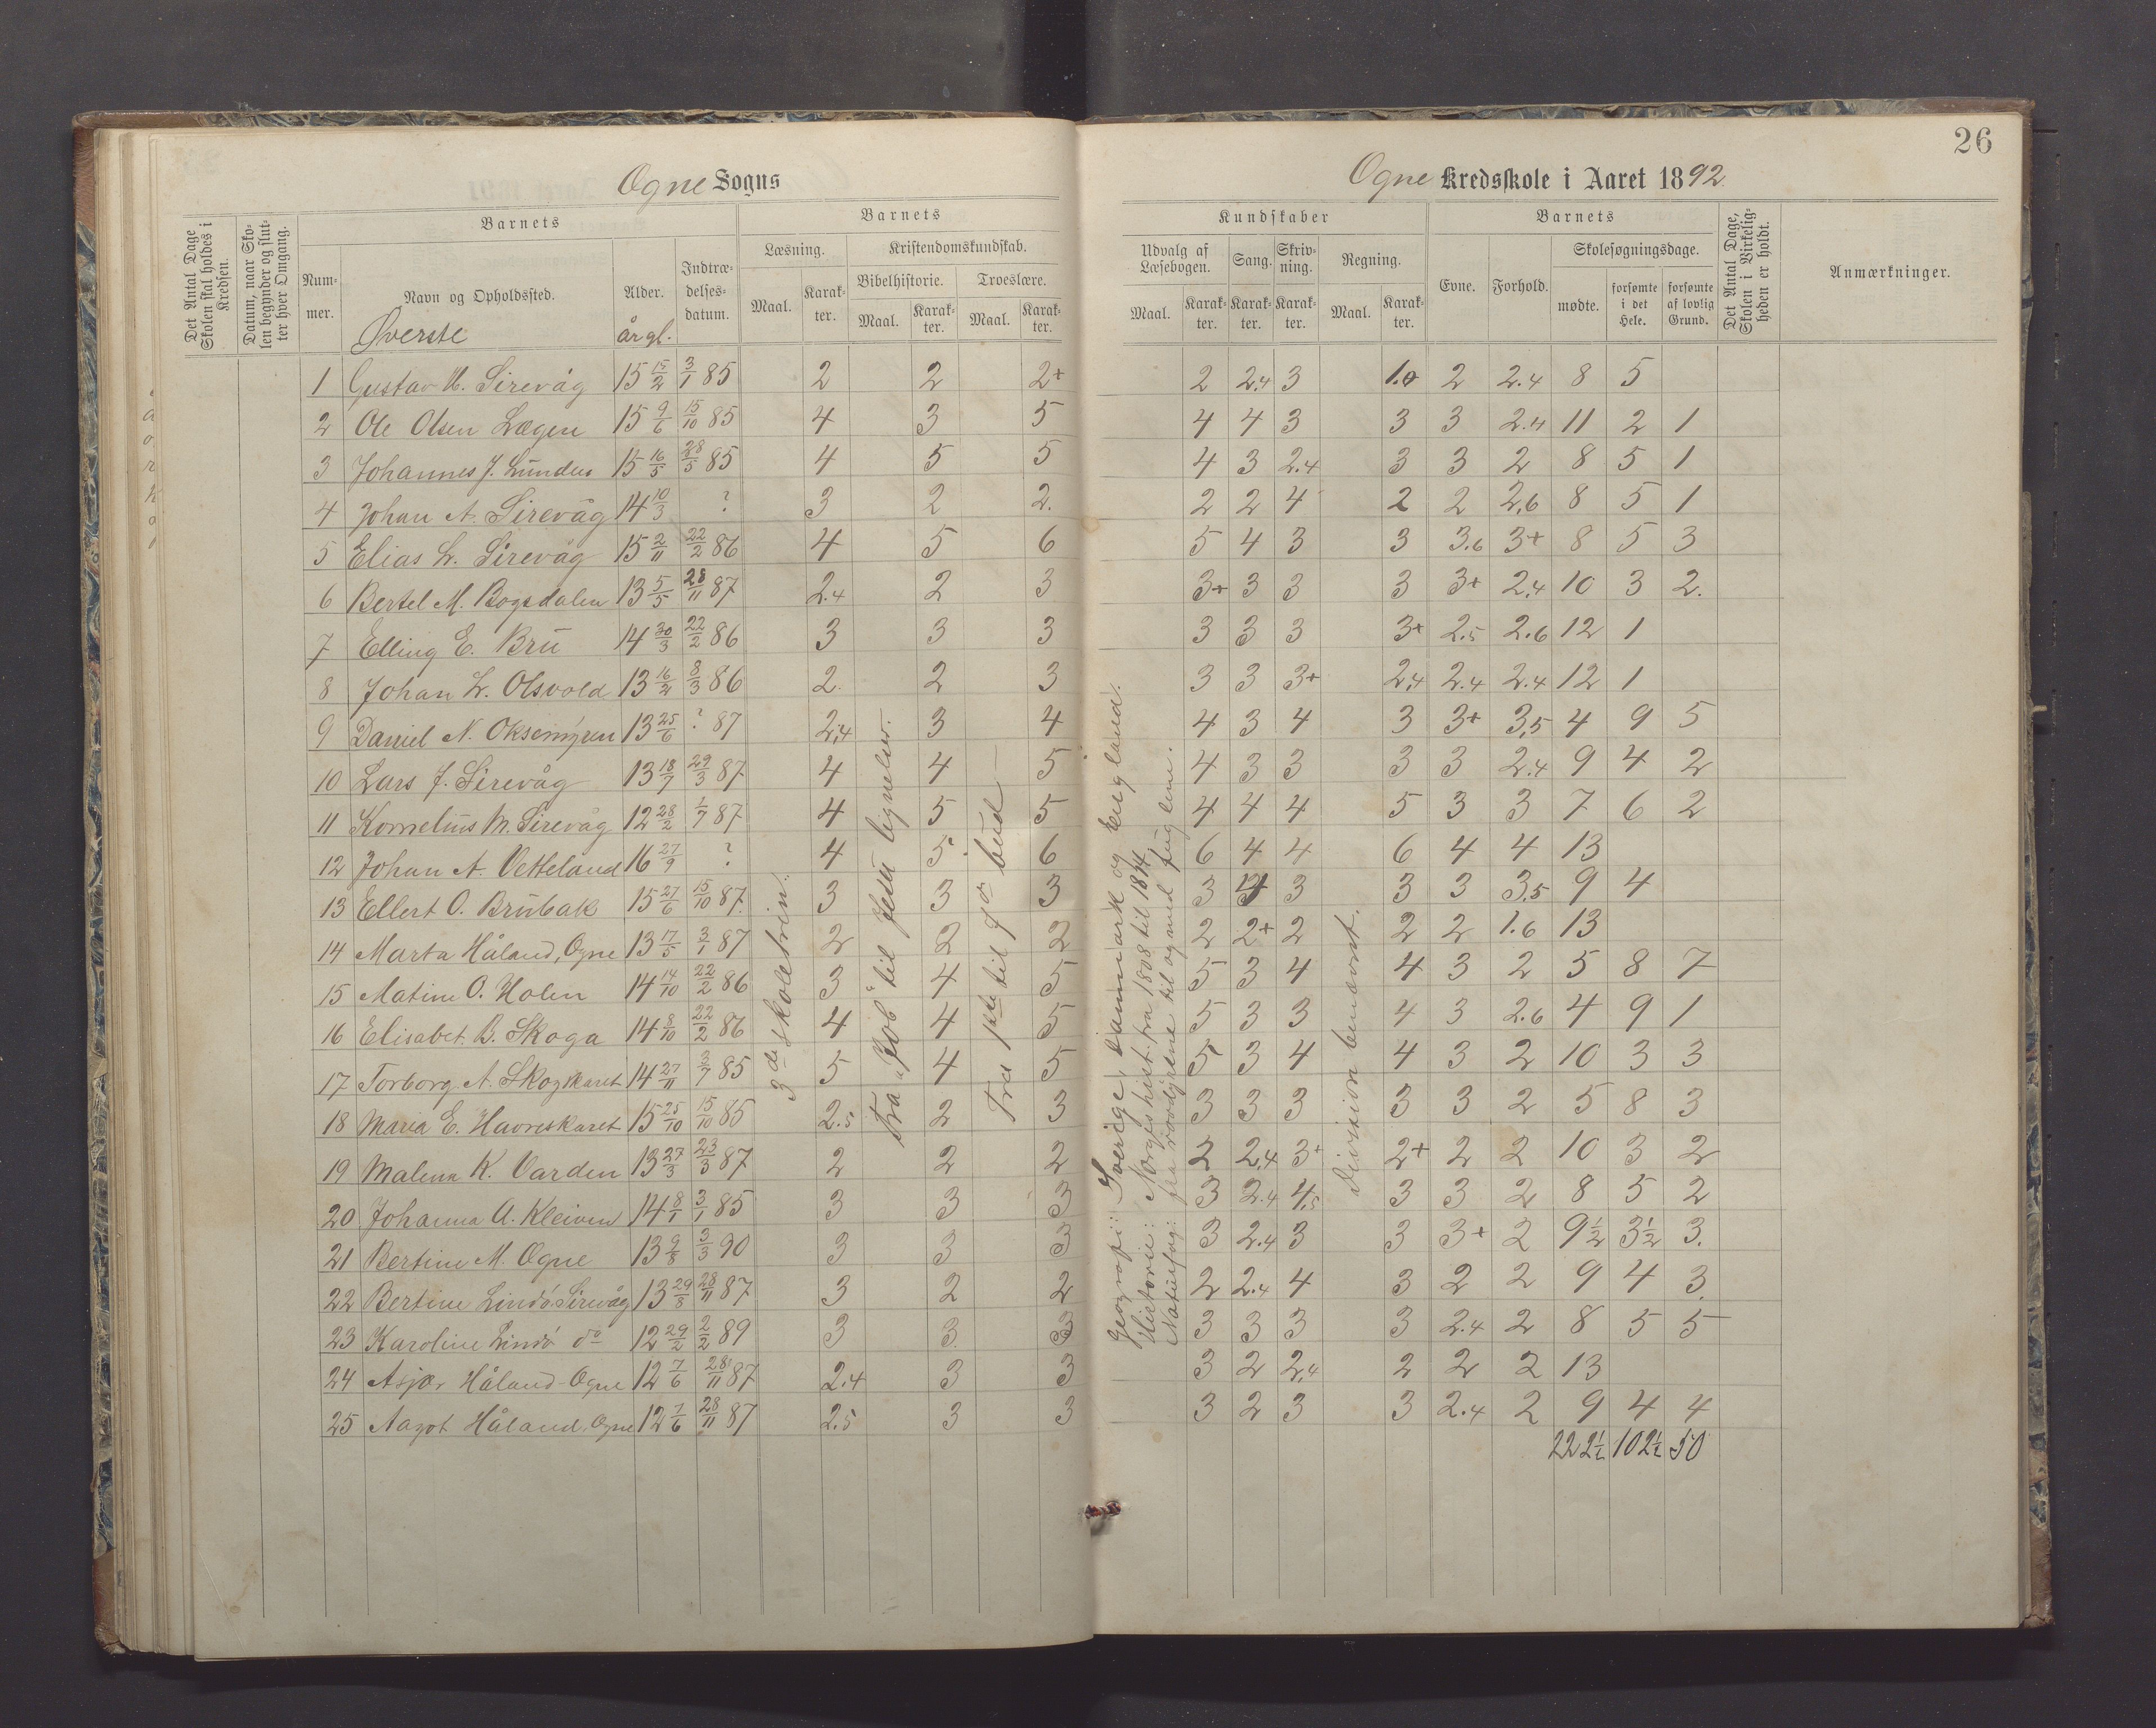 26
Ogne Sogns
Ogne Kredsskole i Aaret 1892.
Det Antal Dage Skolen skal holdes i Kredsen.
Datum, naar Skolen begynder og slutter hver Omgang.
Barnets
Nummer.
Navn og Opholdssted.
Alder.
Indtrædelsesdatum.
Øverste
år gl.
Barnets
Læsning.
Kristendomskundskab.
Bibelhistorie.
Troeslære.
Maal.
Karakter.
Maal.
Karakter.
Maal.
Karakter.
Kundskaber
Udvalg af Læsebogen.
Sang.
Skrivning.
Regning.
Maal.
Karakter.
Karakter.
Karakter.
Maal.
Karakter.
Barnets
Evne.
Forhold.
Skolesøgningsdage.
mødte.
forsømte i det Hele.
forsømte af lovlig Grund.
Det Antal Dage, Skolen i Virkeligheden er holdt.
Anmærkninger.
1 Gustav H. Sirevåg 15 15/2 3/1 85 2 2 2+ 2 2.4 3 2 2.4 8 5
2 Ole Olsen Lægen 15 9/6 15/10 85 4 3 5 4 4 3 3 3 2.4 11 2 1
3 Johannes J. 15 16/5 28/5 85 4 5 5 4 3 2.4 3 3 2 8 5 1
4 Johan A. Sirevåg 14 10/3 ? 3 2 2. 2 2 4 2 2 2.6 8 5 1
5 Elias L. Sirevåg 15 2/11 22/2 86 4 5 6 5 4 3 3 3.6 3+ 8 5 3
6 Bertel M. Bogsdalen 13 5/5 28/11 87 2.4 2 3 3+ 3 3 3 3+ 2.4 10 3 2.
7 Elling E. Bru 14 30/3 22/2 86 3 3 3 3 3 3 3+ 2.5 2.6 12 1
8 Johan L. Olsvold 13 16/2 8/3 86 2. 2 3 3 3 3+ 2.4 2.4 2.4 12 1
9 Daniel N. Oksemyren 13 25/6 ? 87 2.4 3 4 4 3 4 3 3+ 3.5 4 9 5
10 Lars J. Sirevåg 13 18/7 29/3 87 4 4 5 4 3 3 3 3 2.4 9 4 2
11 Kornelius M. Sirevåg 12 28/2 1/7 87 4 5 5 4 4 4 5 3 3 7 6 2
12 Johan A. Vetteland 16 27/9 ? 4 5 6 6 4 4 6 4 4 13
13 Ellert O. Brubak 15 27/6 15/10 87. 3 3 3 3 4 3 3 3 3.5 9 4
14 Marta Håland, Ogne 13 17/5 3/1 87 2 2 2 2 2+ 2 2 2 1.6 13
15 Matine O. Holen 14 14/10 22/2 86 3 4 5 5 3 4 4 3 2 5 8 7
16 Elisabet B. Skoga 14 8/10 22/2 86 4 4 5 5 3 3 4 3 2.6 4 9 1
17 Torborg A. Skogkaret 14 27/11 3/7 85 5 4 5 5 3 4 4 3 2 10 3 3
18 Maria E. Havreskaret 15 25/10 15/10 85 2.5 2 3 3 3 3 3 3 2 5 8 3
19 Malena K. Varden 13 27/3 23/3 87 2 2 2 2 2.4 3+ 2+ 2 2 10 3 2
20 Johanna A. Kleiven 14 8/1 3/1 85 3 3 3 3 2.4 4.5 3 3 2 8 5 2
21 Bertine M. Ogne 13 9/8 3/3 90 3 3 3 3 2.4 3 3 3+ 2 9½ 3½ 3.
22 Bertine Lindö. Sirevåg 13 29/8 28/11 87 3 2 2 2 2.4 4 3 2 2 9 4 3.
23 Karoline Lindö do 12 29/2 2/2 89 3 3. 3 3 3 3 3 2.4 2 8 5 5
24 Asjær Håland - Ogne 12 7/6 28/11 87 2.4 3 3 3 2 2.4 2 2 2 13
25 Aagot Håland. Ogne 12 7/6 28/11 87 2.5 3 3 3 2 3 3 2.4 2 9 4 4
222½ 102½ 50
3de skoletrin.
Fra "Job" til Jesu lignelser.
Fra 1ste til 9de bud
Geografi: Sverige, Danmark og England.
Historie: Norges hist. fra 1808 til 1814
Naturfag: fra rovdyrene til og med fuglene.
Division benævnt.